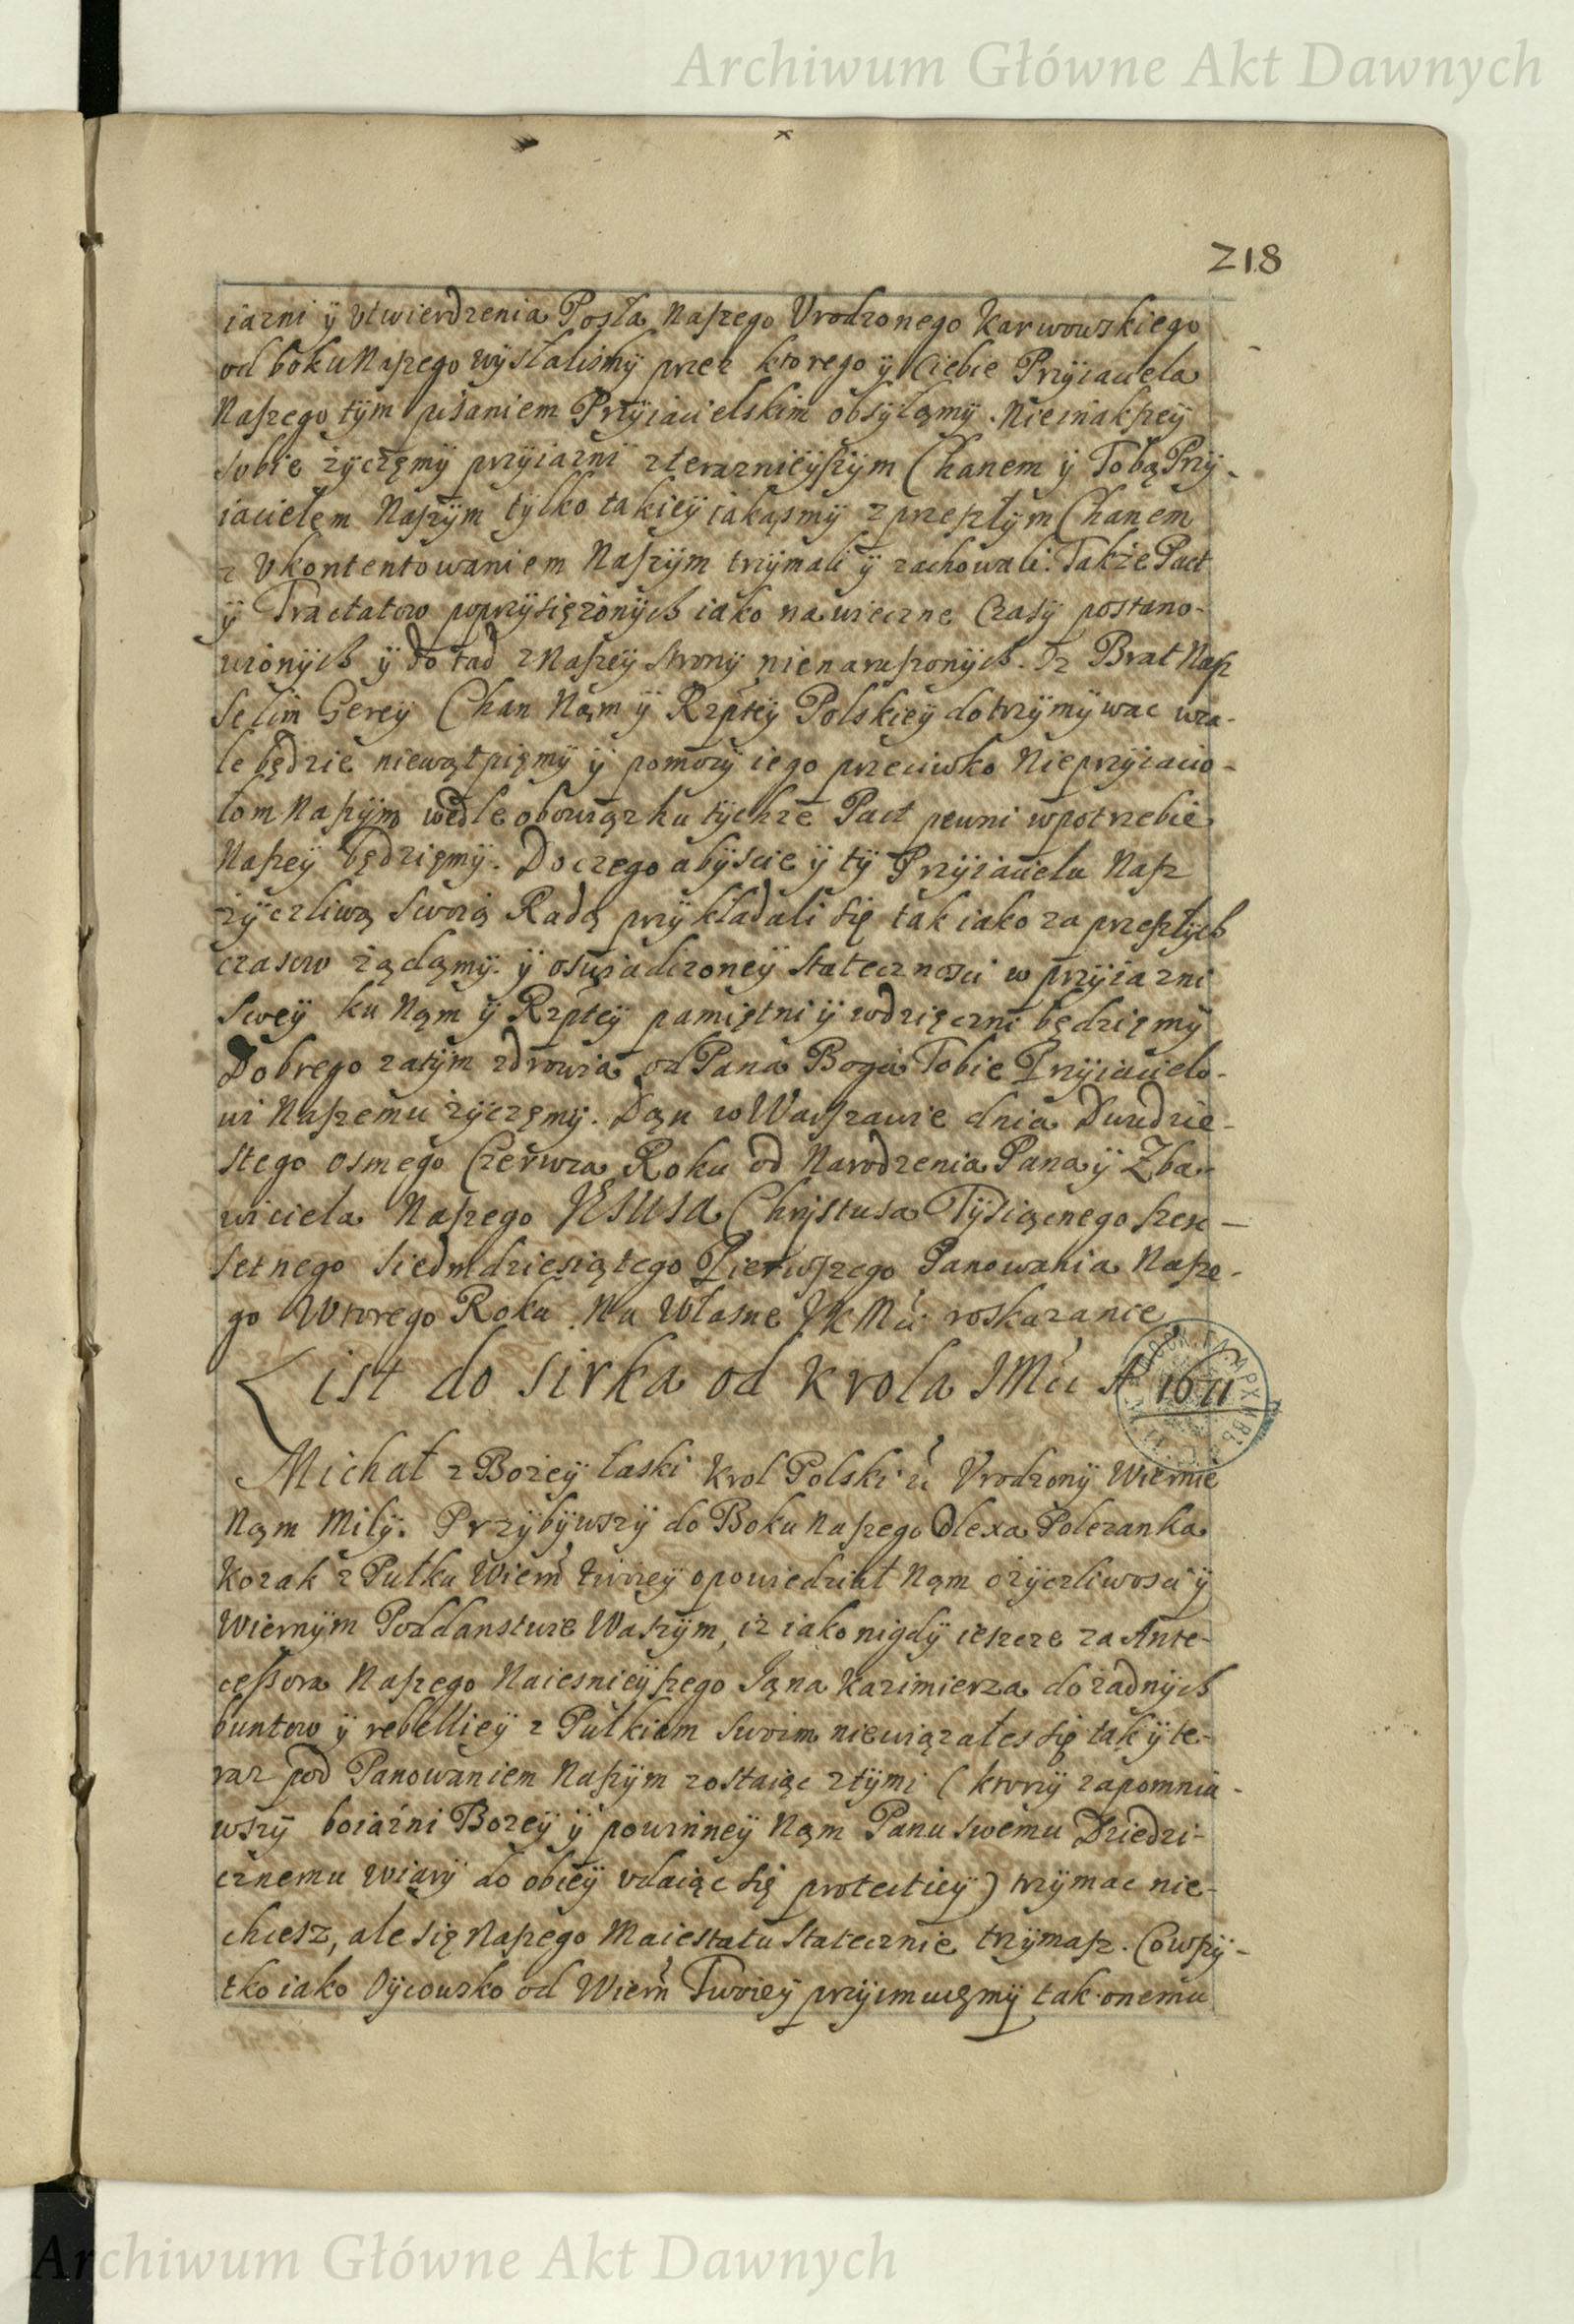 Archiwum Główne Akt Dawnych
218
iazni ÿ Utwierdzenia Posła Naszego Urodzonego Karwowskiego
od boku Naszego wÿsłalismÿ przez ktorego ÿ Ciebie Przÿiaciela
Naszego tÿm pisaniem Przÿiacielskim obsÿłąmÿ. Nieinakszeÿ
sobie zÿczęmÿ przÿiazni z teraznieÿszÿm Chanem ÿ Tobą Przÿ-
iacielem Naszÿm tÿlko takieÿ iakąsmÿ z przeszłÿm Chanem
z Ukontentowaniem Naszÿm trzÿmali ÿ zachowali. Także Pact
ÿ Tractatow poprzÿsięzonÿch iako na wieczne Czasÿ postano-
wionÿch ÿ do tad z Naszeÿ stronÿ nienaruszonÿch. Iz Brat Nasz
Selim Gereÿ Chan Nąm ÿ Rzpteÿ Polskieÿ dotrzÿmÿwac wca-
le będzie niewątpięmÿ ÿ pomocÿ iego przeciwko Nieprzÿiacio-
łom Naszÿm wedle obowiązku tÿchze Pact pewni w potrzebie
Naszeÿ będzięmÿ. Do czego abÿscie ÿ tÿ Przÿiacielu Nasz
zÿczliwą swoią Radą przÿkładali się tak iako za przeszłÿch
czasow ządąmÿ ÿ oswiadczoneÿ statecznosci w przÿiazni
sweÿ ku Nąm ÿ Rzpteÿ pamiętni ÿ wdzięczni będzięmÿ
Dobrego zatÿm zdrowia od Pana Boga Tobie Przÿiacielo-
wi Naszemu zÿczęmÿ. Dąn w Warszawie dnia Dwudzie-
stego osmego Czerwca Roku od Narodzenia Pana ÿ Zba-
wiciela Naszego JESUSA Chrÿstusa Tÿsiącnego szesc-
setnego siedmdziesiątego Pierwszego Panowania Nasze-
go Wtorego Roku. Na Własne JKMci roskazanie
List do Sirka od Krola JMci A 1671
Michał z Bozeÿ łaski Krol Polski &c Urodzonÿ Wiernie
Nąm Milÿ. Przÿbÿwszÿ do Boku Naszego Olexa Polezanka
Kozak z Pułku Wiern twoieÿ opowiedział Nąm o zÿczliwosci ÿ
Wiernÿm Poddanstwie Waszÿm, iz iako nigdÿ ieszcze za Ante-
cessora Naszego Naiesnieÿszego Jąna Kazimierza do żadnÿch
buntow ÿ rebellieÿ z Pułkiem swoim niewiązałes się tak ÿ te-
raz pod Panowaniem Naszÿm zostaiąc z tÿmi (ktorzÿ zapomnia-
wszÿ boiazni Bozeÿ ÿ powinneÿ Nąm Panu swemu Dziedzi-
cznemu wiarÿ do obceÿ udaiąc się protectieÿ) trzÿmac nie-
chcesz, ale się Naszego Maiestatu statecznie trzÿmasz. Co wszÿ-
tko iako Oÿcowsko od Wiern Twoieÿ przÿimuięmÿ tak onemu
Archiwum Główne Akt Dawnych